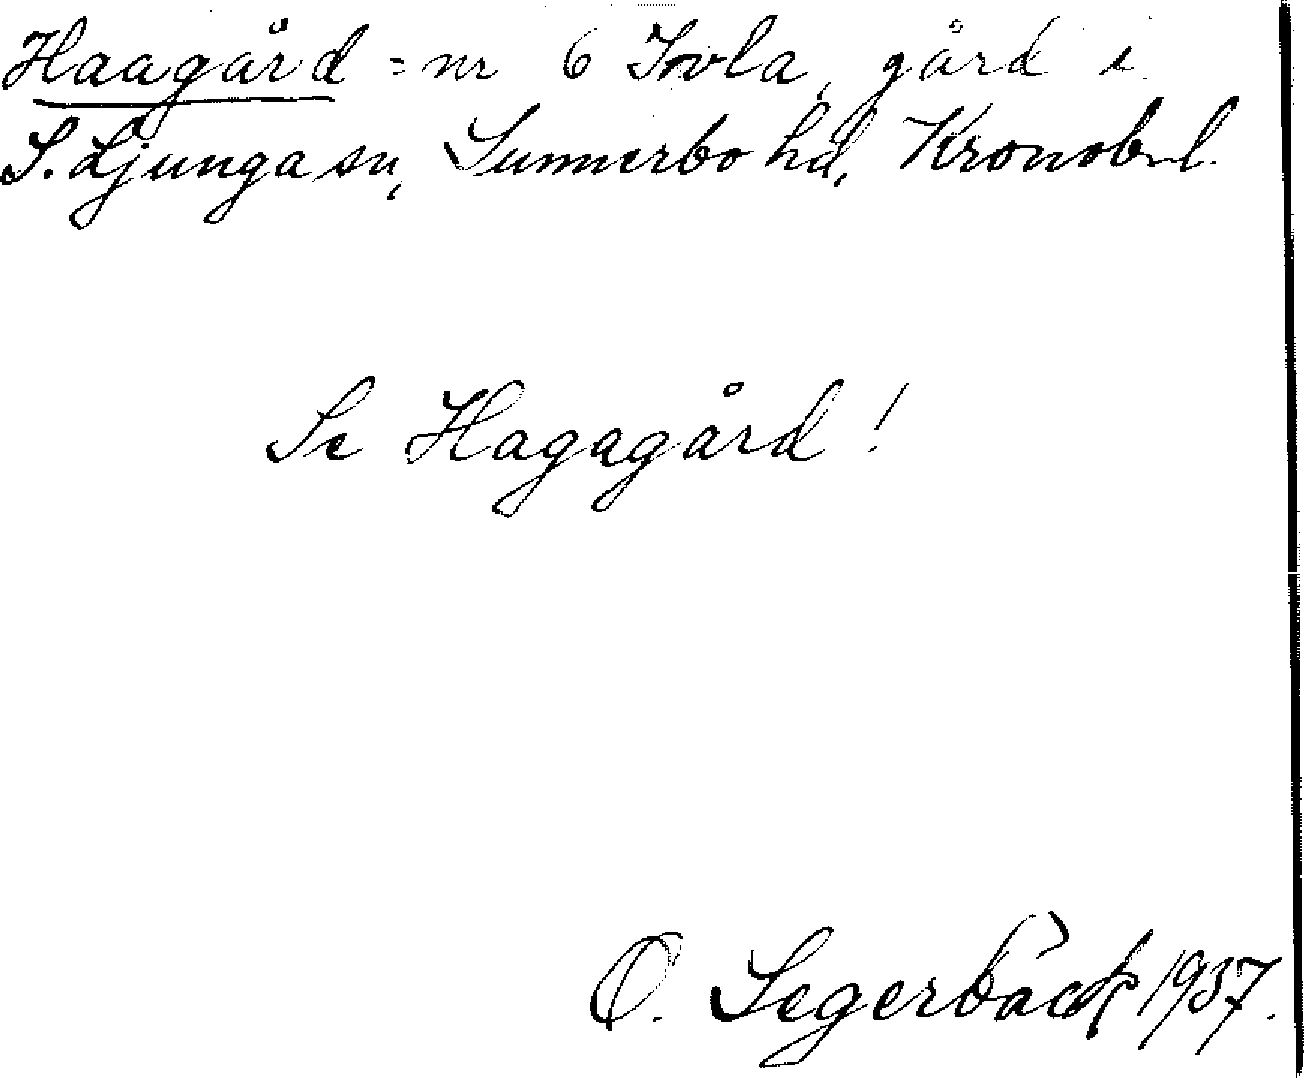 Haagård = nr 6 Tovla, gård i
S. Ljunga sn, Sunnerbo hd, Kronob. l.
Se Hagagård!
O. Segerbäck 1937.